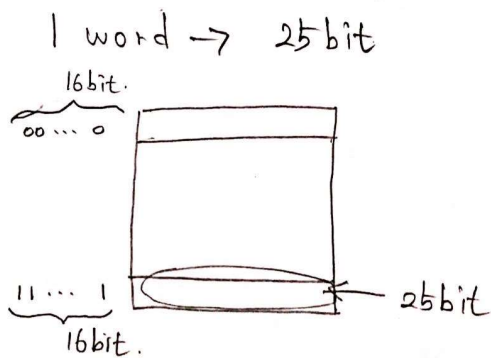 1 word → 25bit
16bit.
00 ... 0
11 ... 1
25bit
16bit.